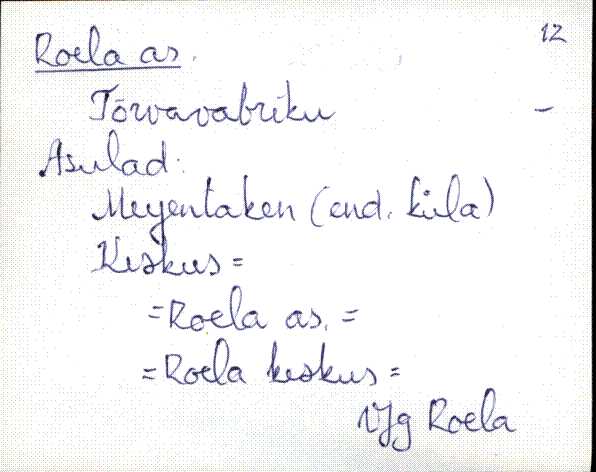 12
Roela as.
Tõrvavabriku –
Asulad:
Meyentaken (end. küla)
Keskus =
= Roela as. =
= Roela keskus =
VJg Roela